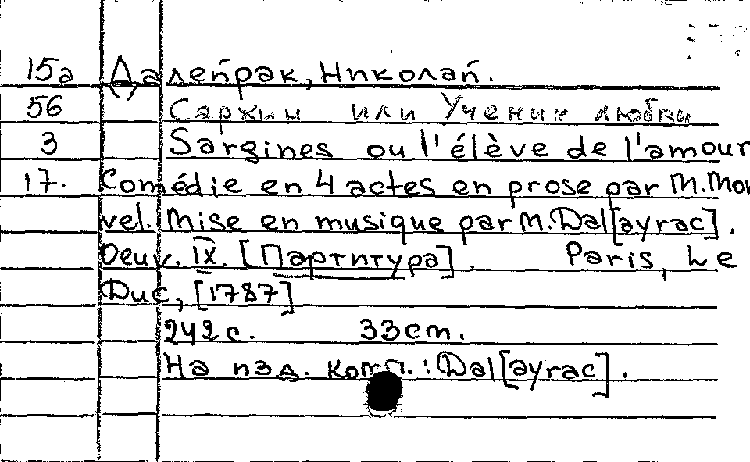 15а Далейрак, Николай.
56 Саржин или Ученик любви
3 Sargines ou l'élève de l'amour
17. Comédie en 4 actes en prose par M. Mon
vel. Mise en musique par M. Dal[ayrac].
Oeuv. IX. [Партитура]. Paris, Le
Duc, [1787]
242 с. 33 cm.
На изд. комп.: Dal[ayrac].